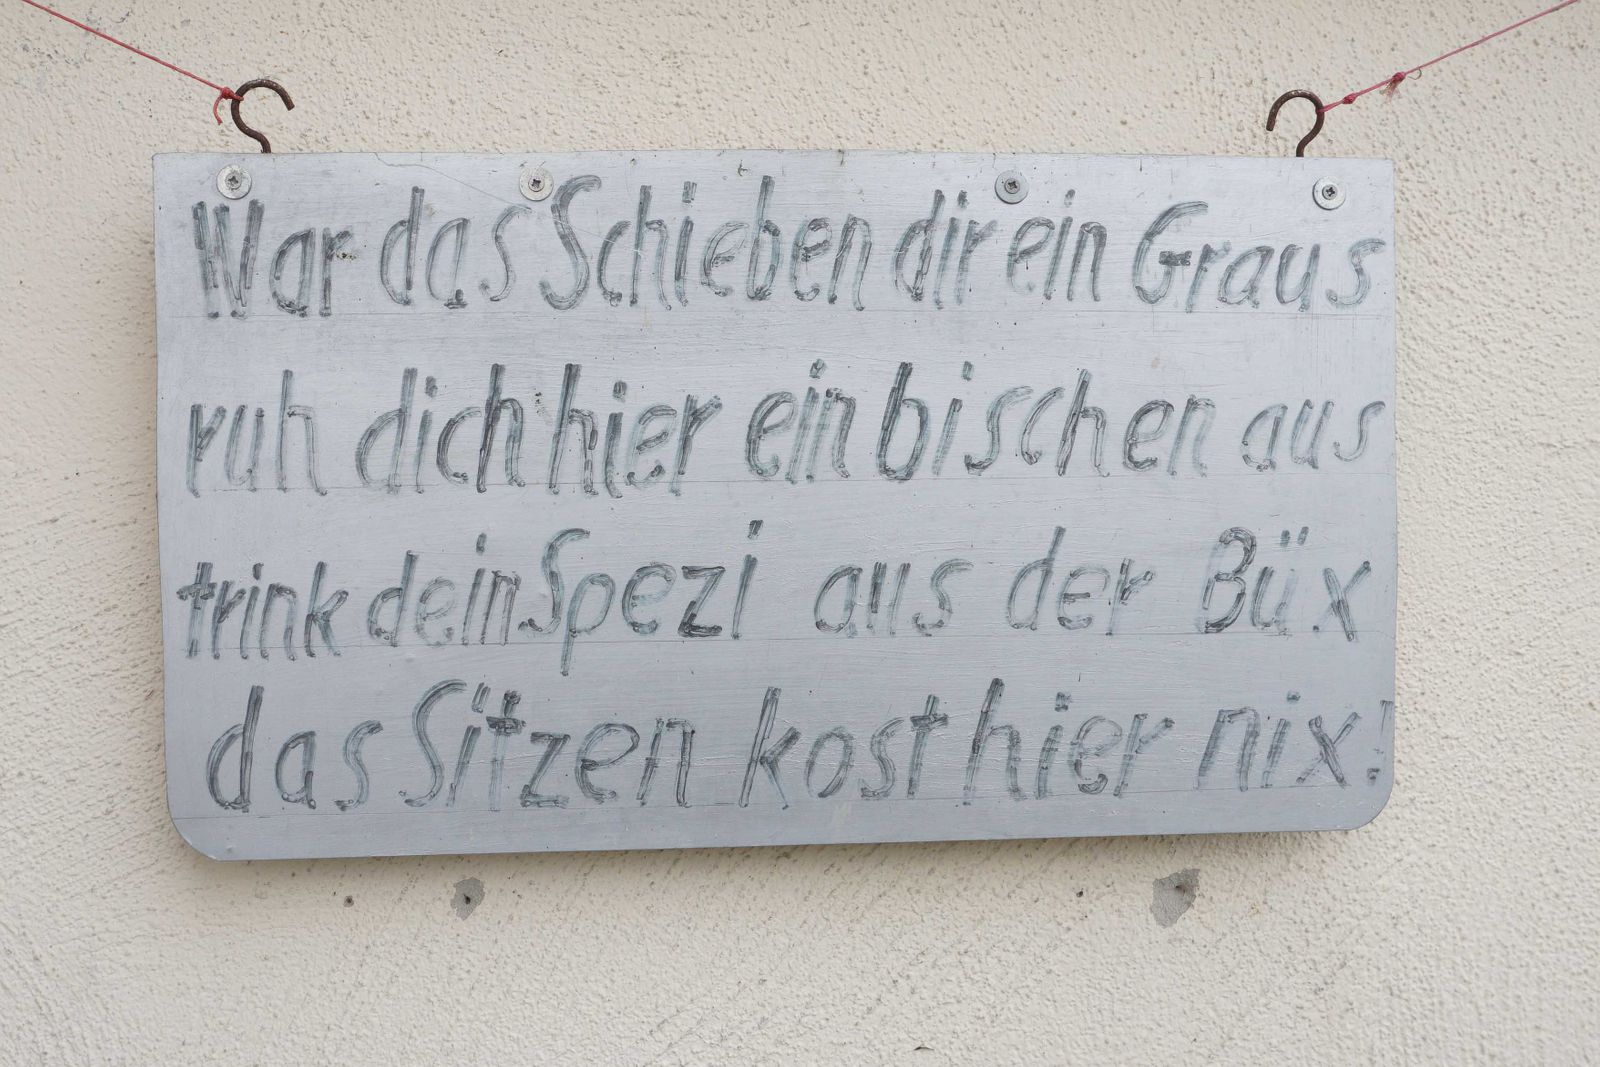 War das Schieben dir ein Graus
ruh dich hier ein bischen aus
trink dein Spezi aus der Büx
das Sitzen kost hier nix!